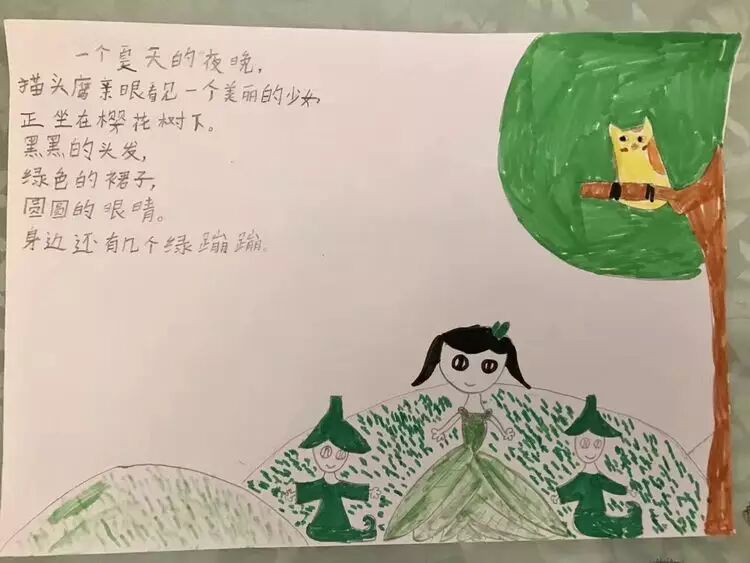 一个夏天的夜晚,
猫头鹰亲眼看见一个美丽的少女,
正坐在樱花树下。
黑黑的头发,
绿色的裙子,
圆圆的眼睛。
身边还有几个绿蹦蹦。